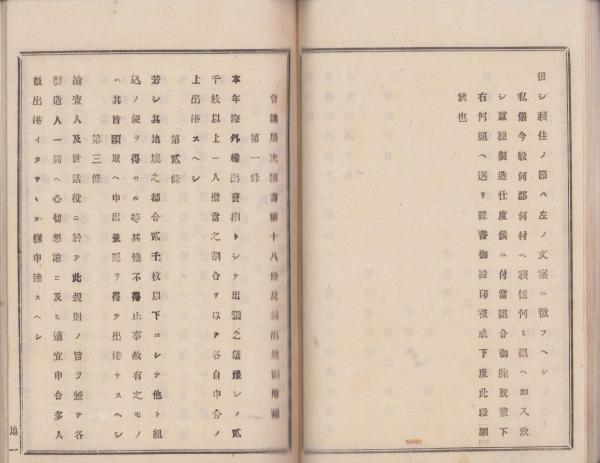 但シ移住ノ節ハ左ノ文案ニ倣フヘシ
私儀今般何郡何村ヘ移住何之組ヘ加入致
シ蚕種製造仕度候ニ付當組合御除被下
右何組ヘ送リ證書御證印被成下度此段願
候也
會議局決議書第十八條及輸出規則増補
第一條
本年海外輸出賣捌トシテ出張之儀ハシノ貳
千枚以上一人擔當之割合ヲ以テ各自申合ノ
上出港スヘシ
第貳條
若シ其地境之都合貳千枚以下ニシテ他ト組
込ノ便ヲ得サル等其他不得止事故有之モノ
ハ其旨頭取ヘ申出兼認ヲ得テ出港ナスヘシ
第三條
檢査人及世話役ニ於テ此規則ノ旨ヲ體テ各
製造人一同ヘ心切懇諭ニ及ヒ適宜申合多人
數出港イタサヽル樣申達スヘシ
追一